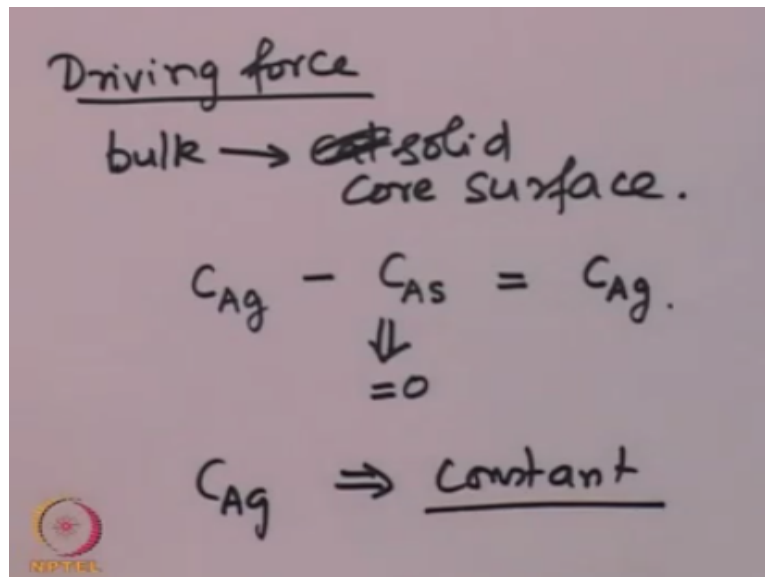 Driving force
bulk → solid
core surface.
C_Ag - C_As = C_Ag.
⇓
=0
C_Ag ⇒ constant
NPTEL